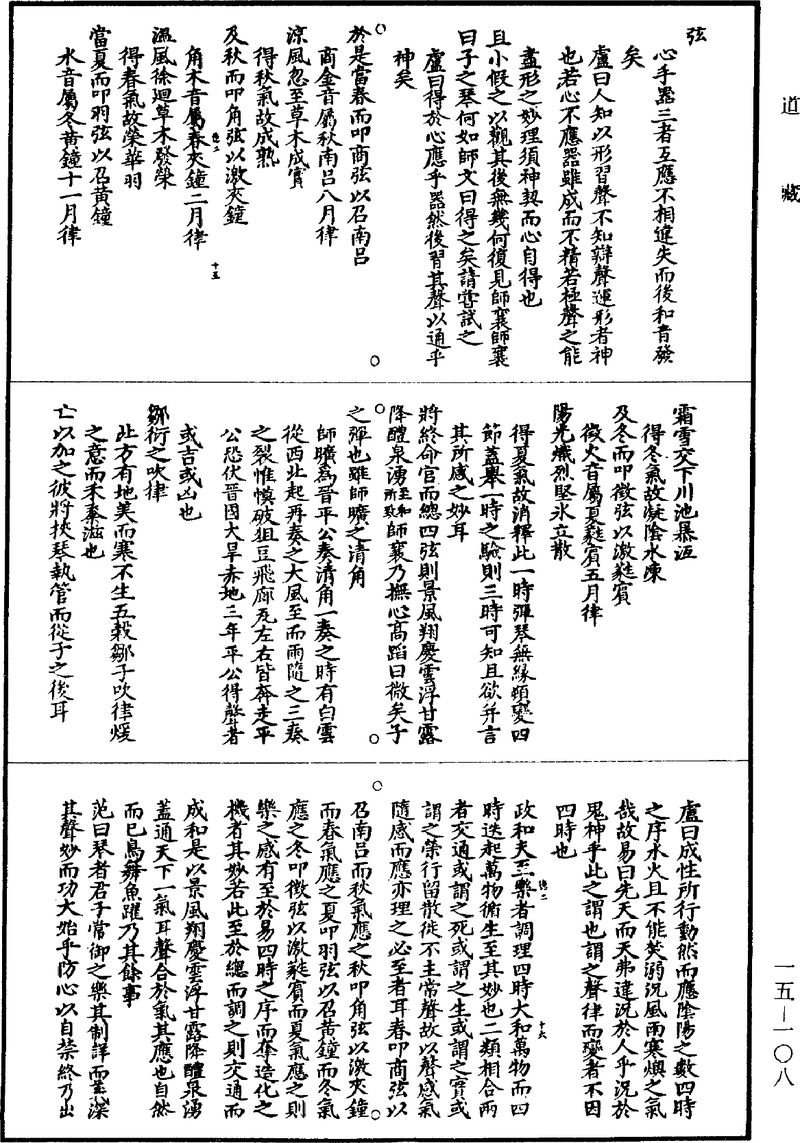 道藏
弦
心手器三者互應不相違失而後和音發
矣
盧曰人知以形習聲不知辯聲運形者神
也若心不應器雖成而不精若極聲之能
盡形之妙理須神契而心自得也
且小假之以觀其後無幾何復見師襄師襄
曰子之琴何如師文曰得之矣請嘗試之
盧曰得於心應乎器然後習其聲以通乎
神矣
於是當春而叩商弦以召南呂
商金音屬秋南呂八月律
涼風忽至草木成實
得秋氣故成熟
及秋而叩角弦以激夾鐘
角木音屬春夾鐘二月律
十五
溫風徐迴草木發榮
得春氣故榮華羽
當夏而叩羽弦以召黃鐘
水音屬冬黃鐘十一月律
霜雪交下川池暴沍
得冬氣故凝陰水凍
及冬而叩徵弦以激蕤賓
徵火音屬夏蕤賓五月律
陽光熾烈堅冰立散
得夏氣故消釋此一時彈琴無緣頓變四
節蓋舉一時之驗則三時可知且欲并言
其所感之妙耳
將終命宮而總四弦則景風翔慶雲浮甘露
降醴泉湧至和所致師襄乃撫心高蹈曰微矣子
之彈也雖師曠之清角
師曠為晉平公奏清角一奏之時有白雲
從西北起再奏之大風至而雨隨之三奏
之裂帷慎破俎豆飛廊瓦左右皆奔走平
公恐伏晉國大旱赤地三年平公得聲者
或吉或凶也
鄒衍之吹律
北方有地美而寒不生五穀鄒子吹律煖
之意而禾黍滋也
亡以加之彼將挾琴執管而從子之後耳
盧曰成性所行動然而應陰陽之數四時
之序水火且不能焚溺況風雨寒燠之氣
哉故易曰先天而天弗違況於人乎況於
鬼神乎此之謂也謂之聲律而變者不因
四時也
政和夫至樂者調理四時大和萬物而四
十六
時迭起萬物循生至其妙也二類相合兩
者交通或謂之死或謂之生或謂之實或
謂之榮行留散徙不主常聲故以聲感氣
隨感而應亦理之必至者耳春叩商弦以
召南呂而秋氣應之秋叩角弦以激夾鐘
而春氣應之夏叩羽弦以召黃鐘而冬氣
應之冬叩徵弦以激蕤賓而夏氣應之則
樂之感有至於易四時之序而奪造化之
機者其妙若此至於總而調之則交通而
成和是以景風翔慶雲浮甘露降醴泉湧
蓋通天下一氣耳聲合於氣其應也自然
而已鳥舞魚躍乃其餘事
范曰琴者君子常御之樂其制詳而義深
其聲妙而功大始乎防心以自禁終乃出
一五—一〇八